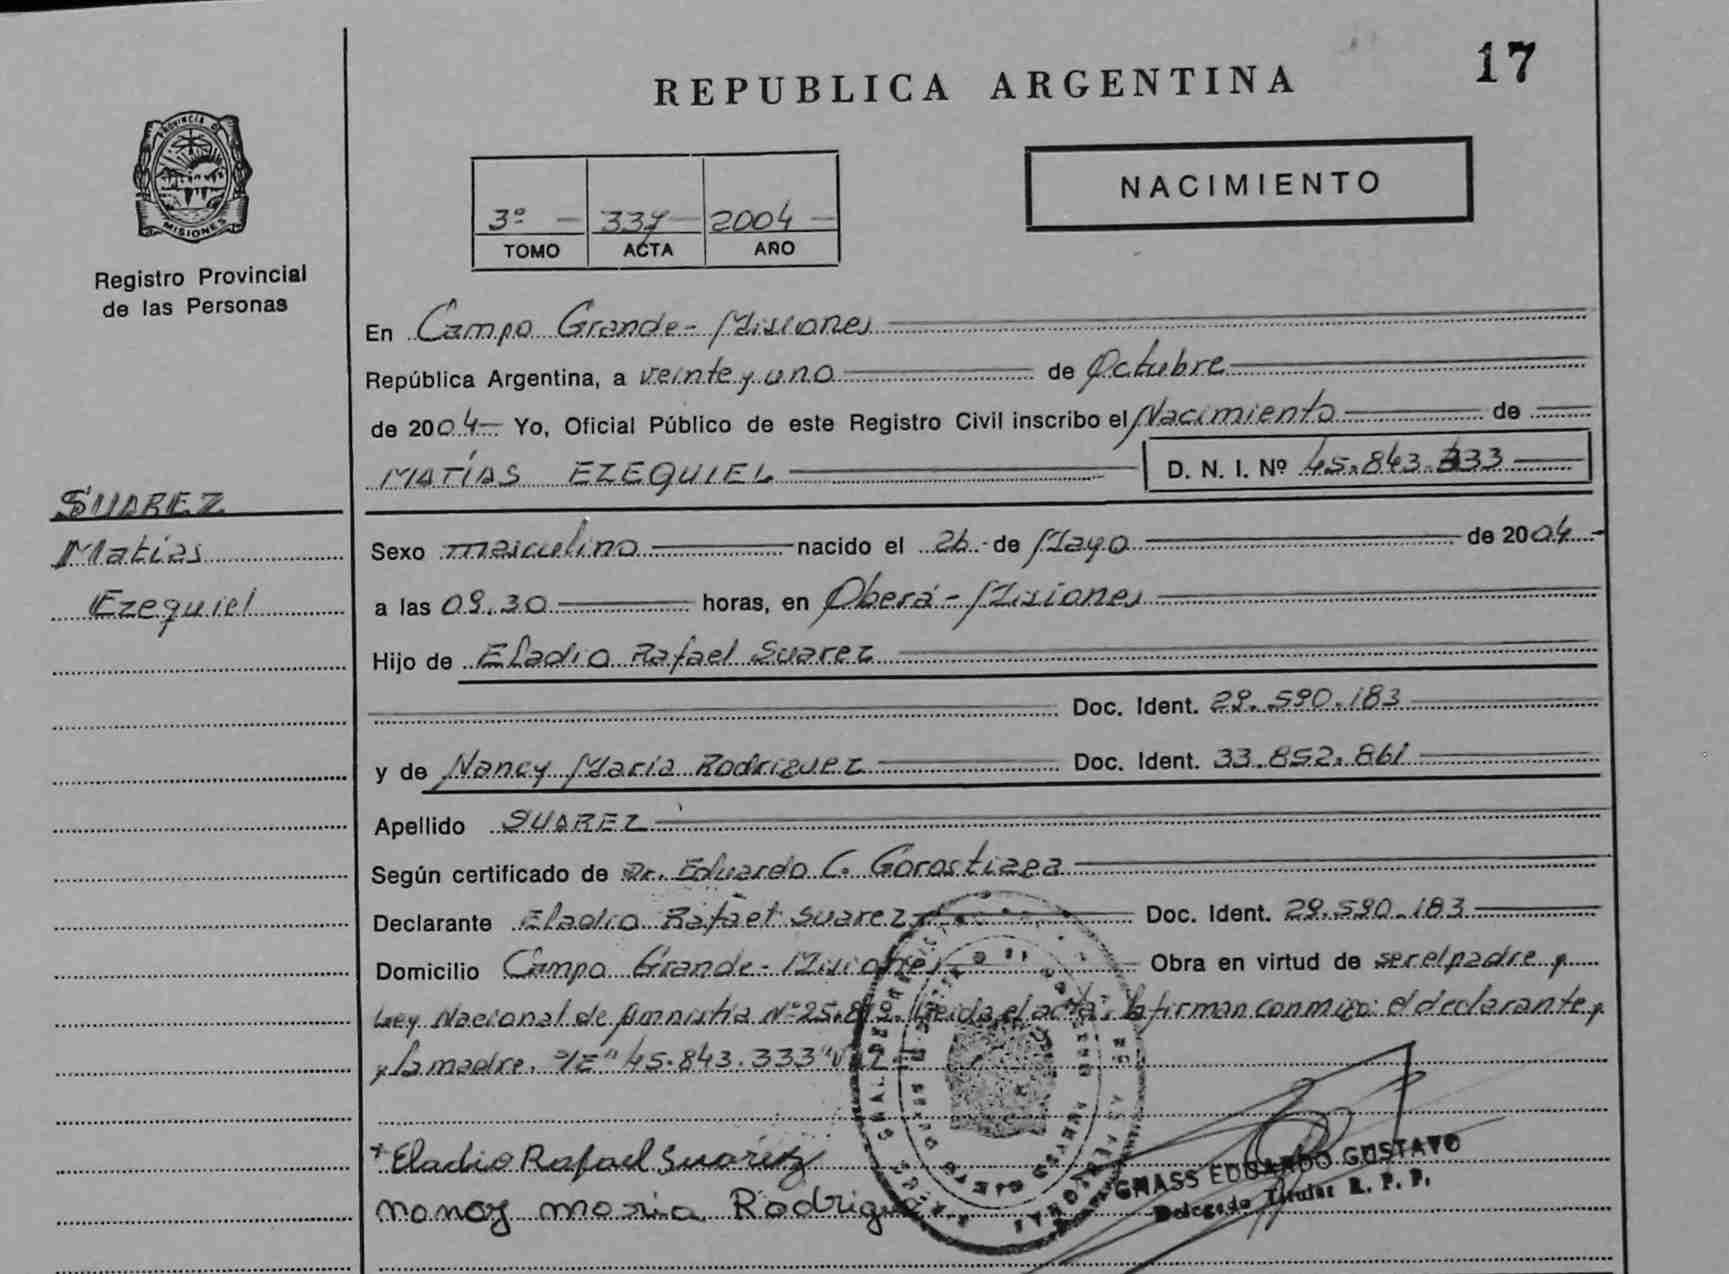 17
REPUBLICA ARGENTINA
PROVINCIA DE
MISIONES
Registro Provincial
de las Personas
NACIMIENTO
3º 337 2004
TOMO ACTA AÑO
En Campo Grande - Misiones
República Argentina, a veinte y uno de Octubre
de 2004 Yo, Oficial Público de este Registro Civil inscribo el Nacimiento de
MATÍAS EZEQUIEL D. N. I. Nº 45.843.333
SUAREZ
Matías
Ezequiel
Sexo masculino nacido el 26 de Mayo de 2004
a las 09.30 horas, en Oberá - Misiones
Hijo de Eladio Rafael Suarez
Doc. Ident. 29.590.183
y de Nancy María Rodriguez Doc. Ident. 33.852.861
Apellido SUAREZ
Según certificado de Dr. Eduardo C. Gorostiaga
Declarante Eladio Rafael Suarez Doc. Ident. 29.590.183
Domicilio Campo Grande - Misiones Obra en virtud de ser el padre y
Ley Nacional de Amnistía Nº 25.819. Leida el acta, la firman conmigo: el declarante y
y la madre. "45.843.333"
Eladio Rafael Suarez
nancy maria Rodrigue
GNASS EDUARDO GUSTAVO
Delegado Titular R. P. P.